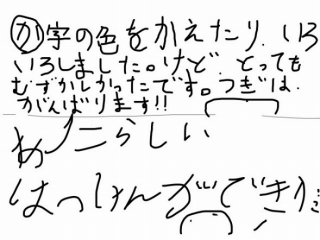 か 字の色をかえたり、いろ
いろしました。けど、とっても
むずかしかったです。つぎは、
がんばります!!
あたらしい
はっけんができた